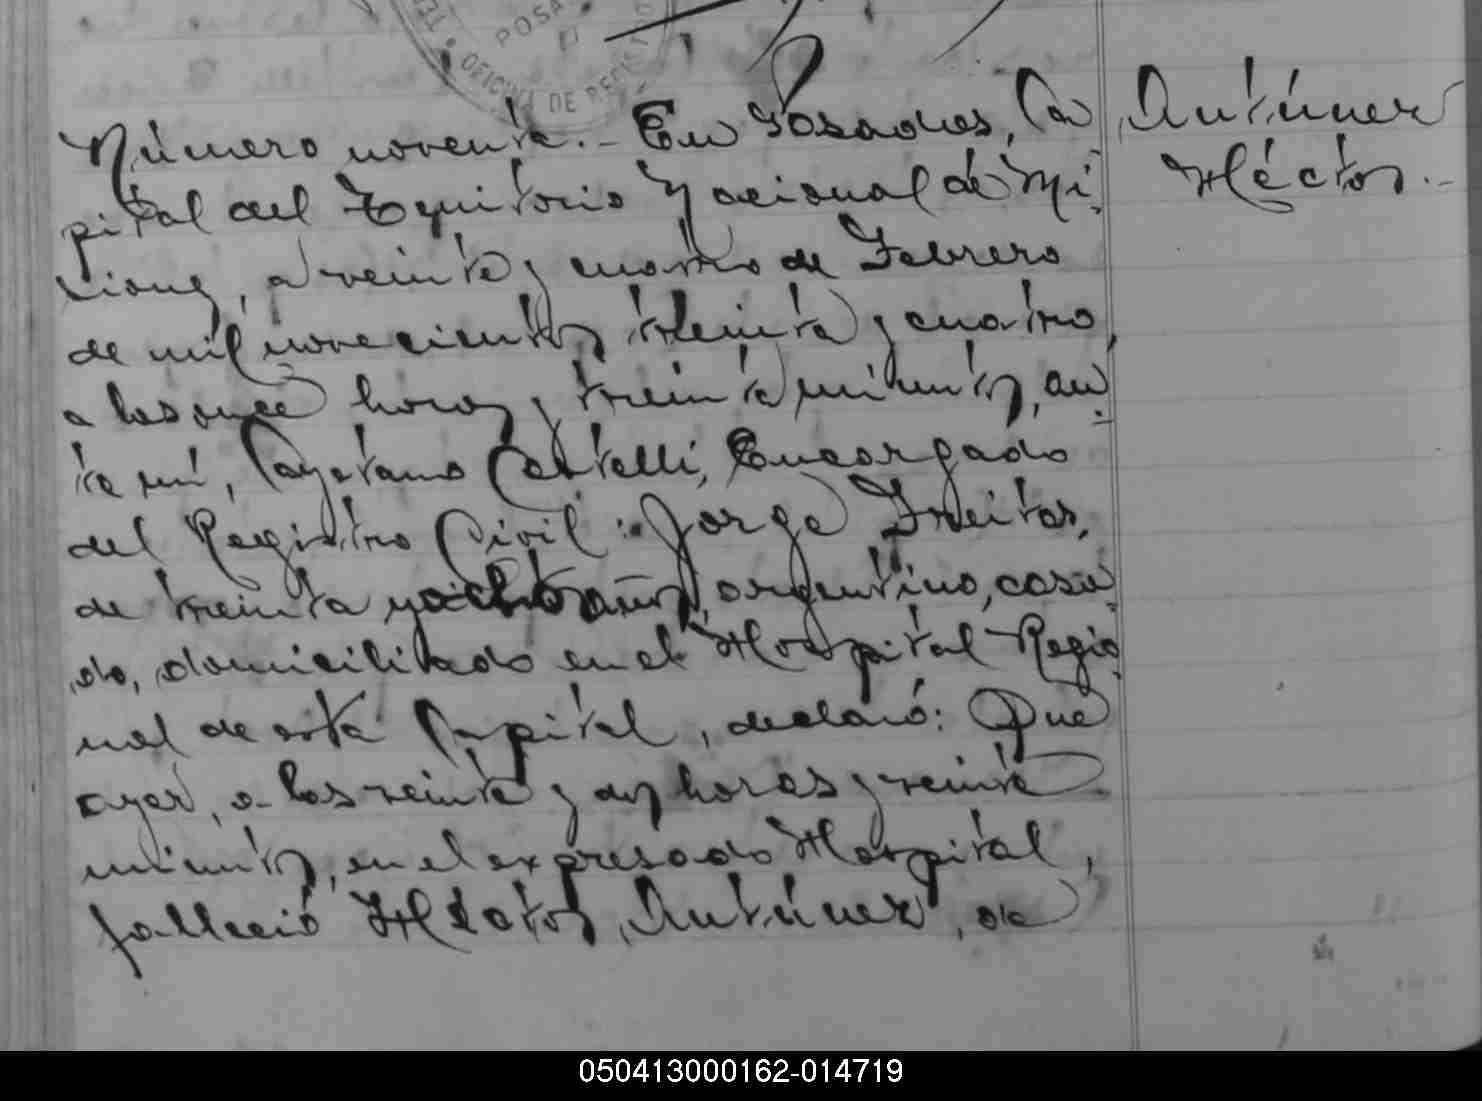 POSA
OFICINA DE REGIST
Número noventa.- En Posadas, Ca
pital del Territorio Nacional de Mi-
siones, a veinte y cuatro de Febrero
de mil novecientos treinta y cuatro,
a las once horas y treinta minutos, an-
te mí, Cayetano Castelli, Encargado
del Registro Civil: Jorge Freitas,
de treinta y ocho años, argentino, casa-
do, domicilitado en el Hospital Regio-
nal de esta Capital, declaró: Que
ayer, a las veinte y dos horas y veinte
minutos, en el expresado Hospital,
falleció Héctor Antúnez, de
Antúnez
Héctor.-
050413000162-014719